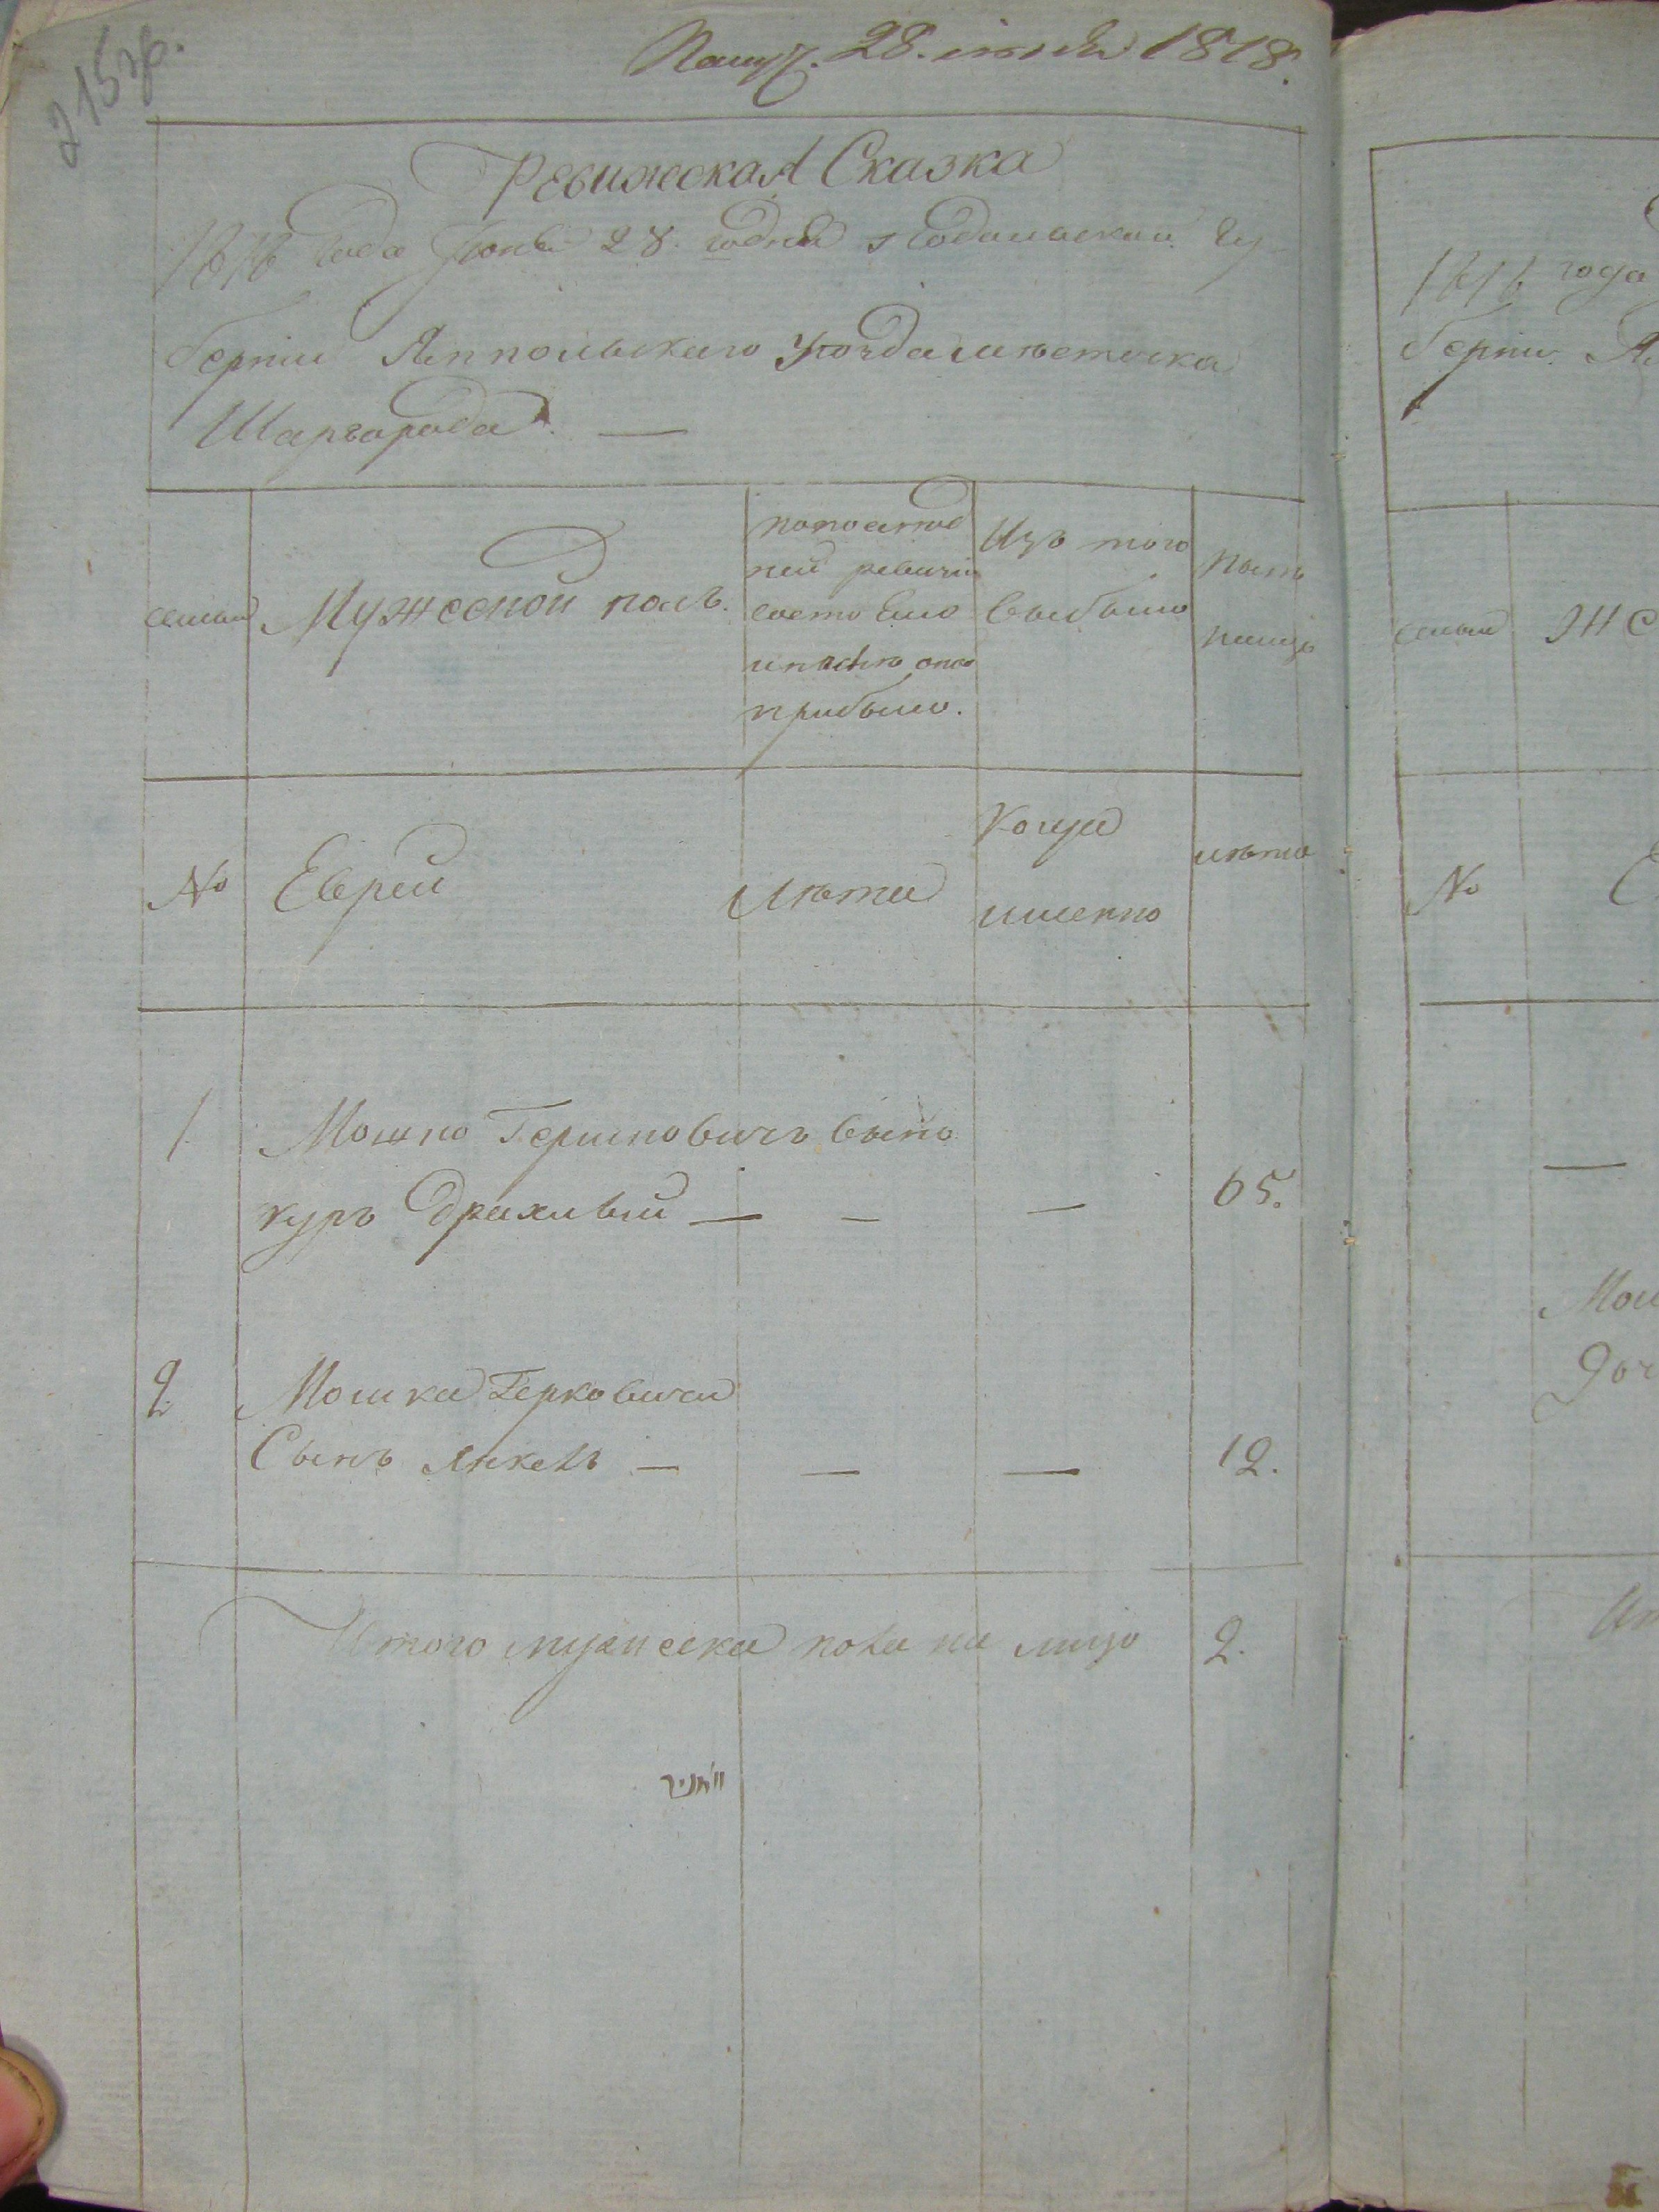 215 зв.
Получ. 28. июня 1818.
Ревижская Сказка
1818 года Июня 28. го дня Подольской Гу
берніи Ямпольскаго Уѣзда мѣстечка
Шаргорода. —
семьи
Мужеской полъ.
по послѣд
ней ревизіи
состояло
и послѣ оной
прибыло.
Изъ того
выбыло
нынѣ
на лицо
№
Еврей
Лѣта
Когда
именно
лѣта
1.
Мошко Гершковичъ
куръ Дряхлый — — —
65.
2
Мошка Герковича
Сынъ Янкель — — —
12.
Итого мужеска пола на лицо
2.
1818 года
берніи
семьи
Же
№
—
Мош
доч
Ит